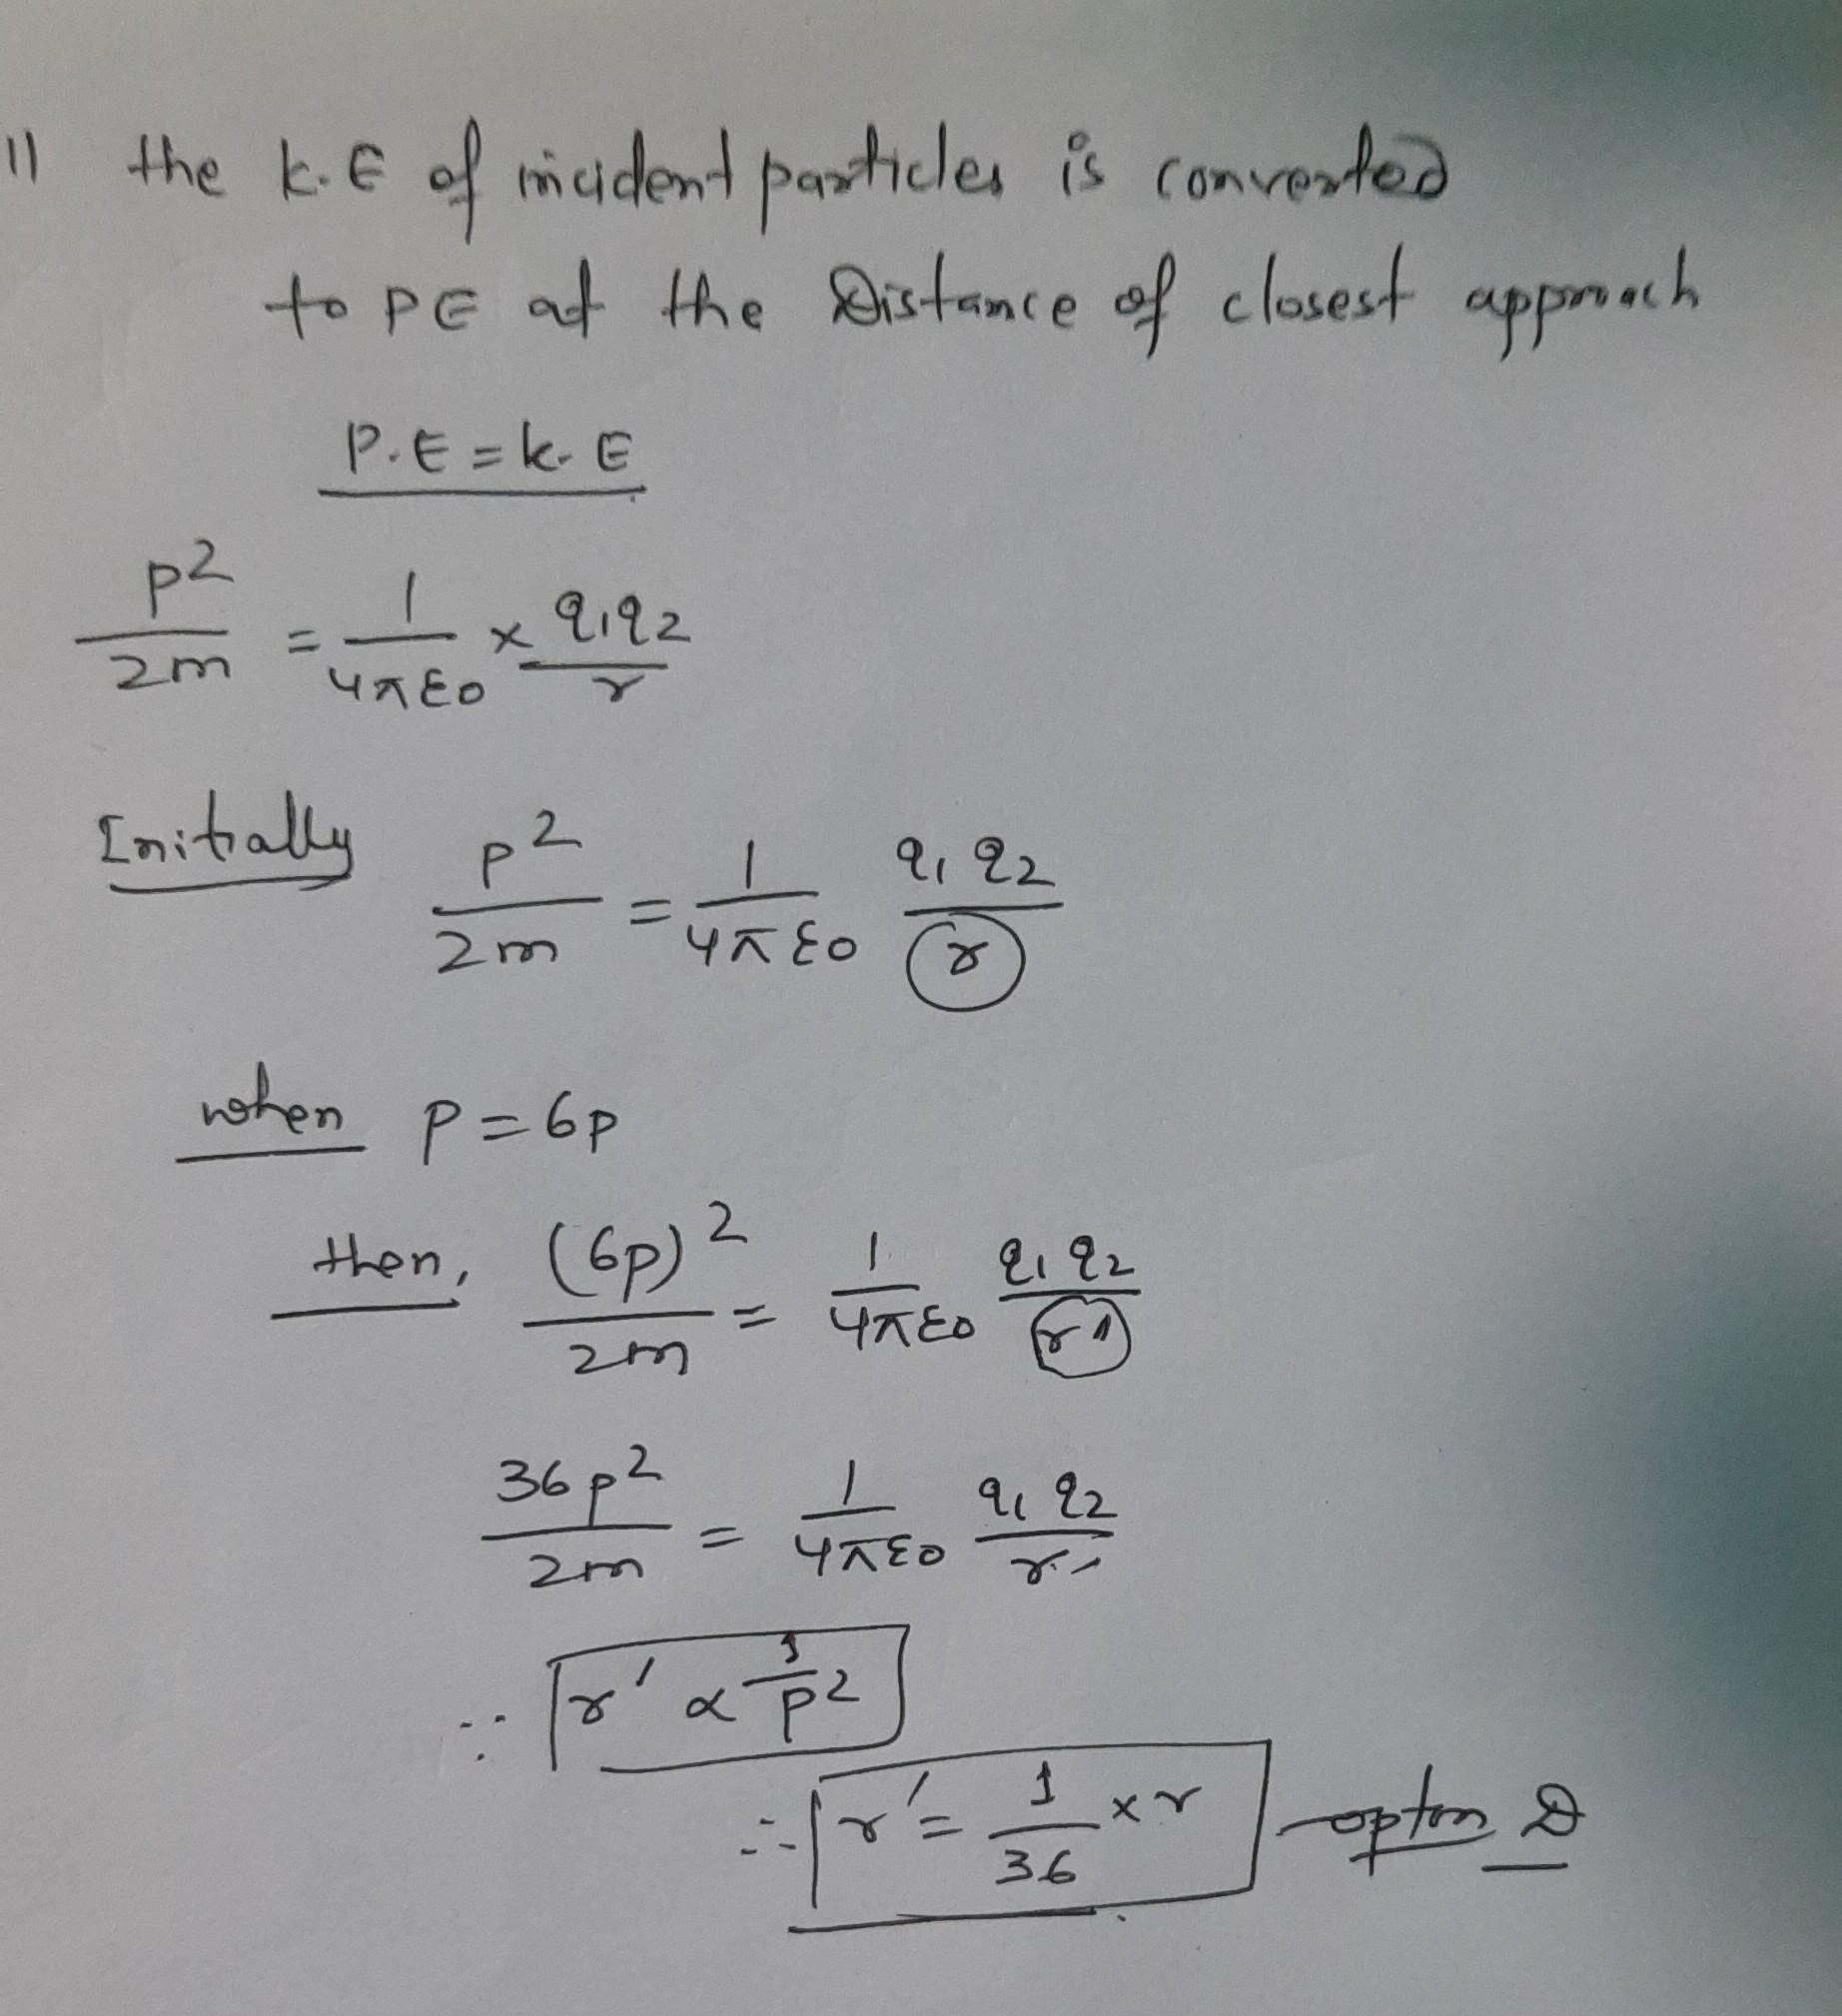 11 the K.E of incident particles is converted
to PE at the Distance of closest approach
P.E = k.E
p²/2m = 1/4πε0 × q1q2/r
Initially p²/2m = 1/4πε0 q1 q2/r
when p = 6p
then, (6p)²/2m = 1/4πε0 q1 q2/r1
36p²/2m = 1/4πε0 q1 q2/r'
∴ r' α 1/p²
∴ r' = 1/36 × r opton D